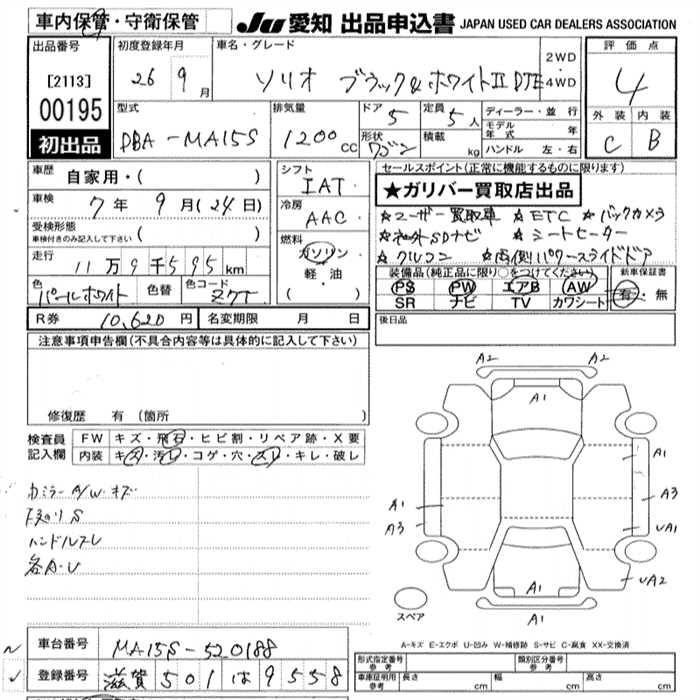 車内保管・守衛保管 JU 愛知 出品申込書 JAPAN USED CAR DEALERS ASSOCIATION
出品番号 初度登録年月 車名・グレード 評価点
[2113] 26 9月 ソリオ ブラック&ホワイトⅡ DJE 2WD・4WD 4
00195 型式 排気量 ドア 定員 ディーラー・並行 外装 内装
初出品 DBA-MA15S 1200cc 5 5人 モデル年式 年 C B
形状 ワゴン 積載 kg ハンドル 左・右
車歴 自家用・( ) シフト IAT セールスポイント(正常に機能するものに限ります)
車検 7年9月(24日) 冷房 AAC ★ガリバー買取店出品
受検形態 車検付きのみ記入して下さい ( ) ☆ユーザー買取車 ☆ETC ☆バックカメラ
走行 11万9千595km 燃料 ガソリン・軽油 ( ) ☆社外SDナビ ☆シートヒーター
☆クルコン ☆両側パワースライドドア
色 パールホワイト 色替 色コード Z7T 装備品(純正品に限り○をつけてください) 新車保証書
PS PW エアB AW 有・無
SR ナビ TV カワシート
R券 10,620円 名変期限 月 日 後日品
注意事項申告欄(不具合内容等は具体的に記入して下さい)
修復歴 有(箇所
検査員記入欄 FW キズ・飛石・ヒビ割・リペア跡・X要
内装 キズ・汚レ・コゲ・穴・スレ・キレ・破レ
カミラー A/W・キズ
ハンドルスレ
各A・U
A2 A2
A1
A1
A1 A3
A3 UA1
UA2
A1
A1
スペア
A-キズ E-エクボ U-凹み W-補修跡 S-サビ C-腐食 XX-交換済
車台番号 MA15S-520188 形式指定番号 参考 類別区分番号 参考
登録番号 滋賀 501 は 9558 車庫証明用 参考 長さ cm 幅 cm 高さ cm